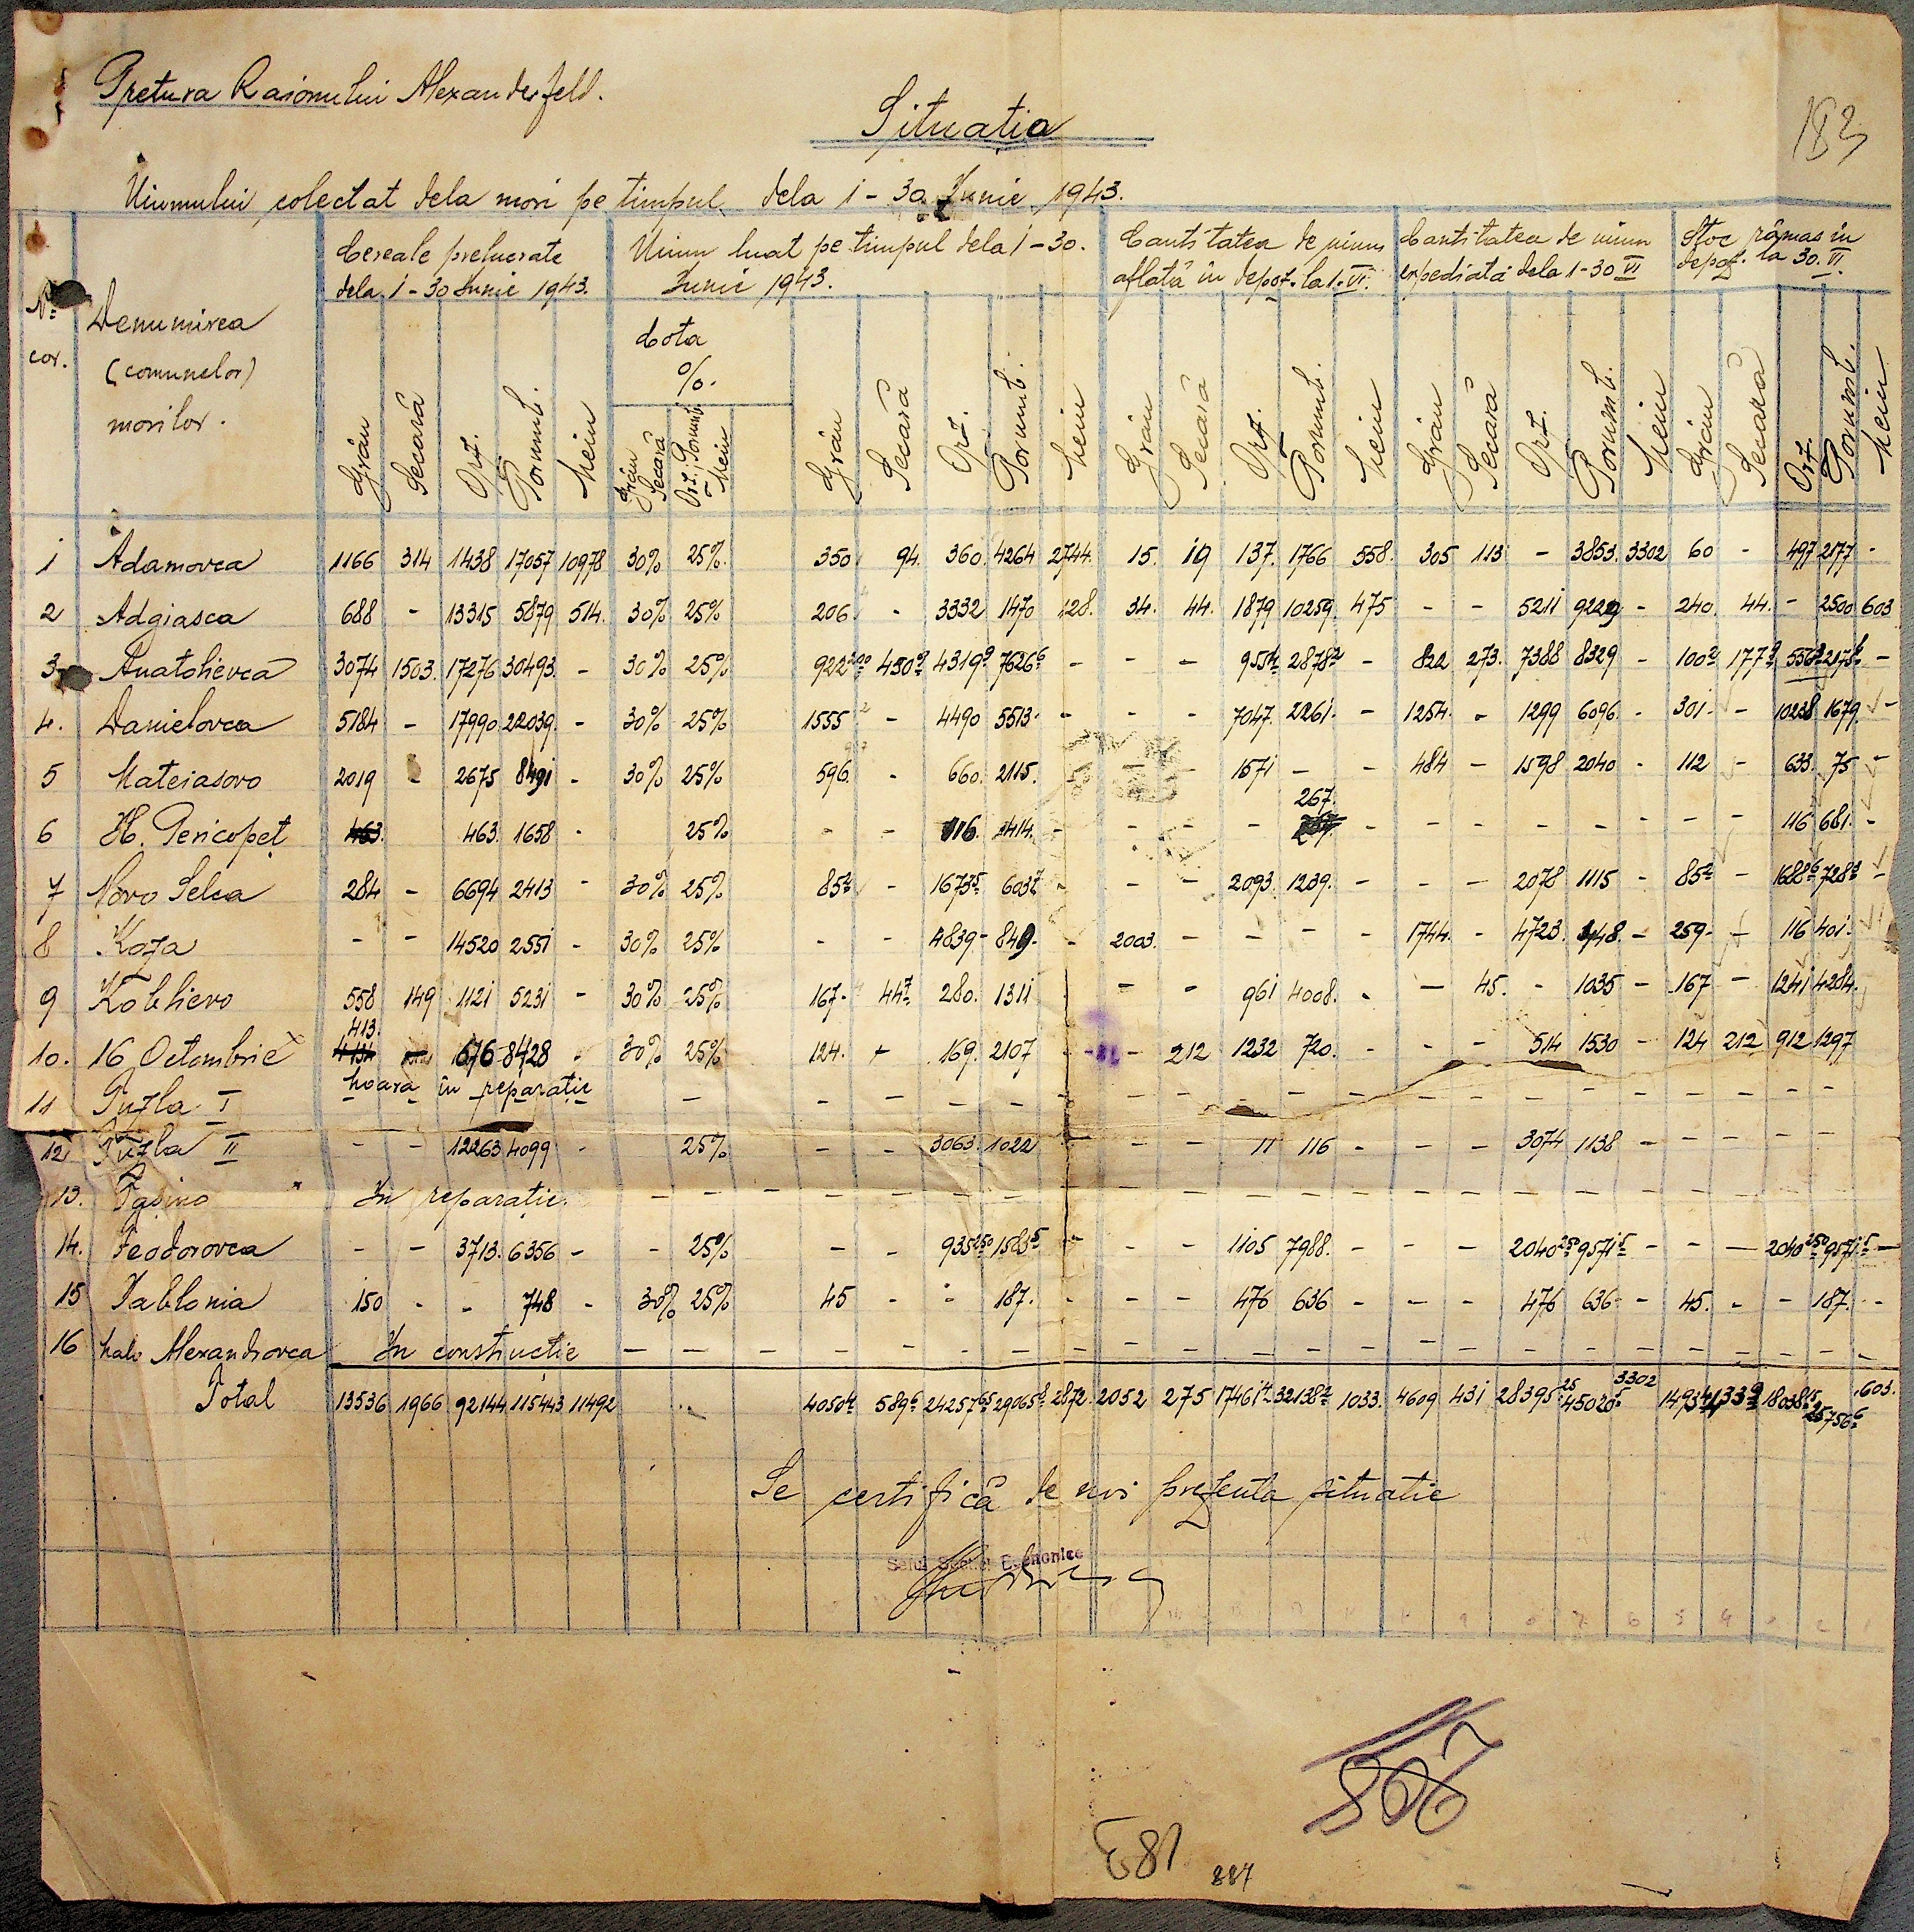 Pretura Raionului Alexanderfeld.
183
Situația
Uiumului colectat dela mori pe timpul dela 1-30 Iunie 1943.
No cor. Denumirea (comunelor) morilor. Cereale prelucrate dela 1-30 Iunie 1943. Uium luat pe timpul dela 1-30. Iunie 1943. Cantitatea de uium aflată în depoz. la 1.VI. Cantitatea de uium expediată dela 1-30 VI Stoc rămas în depoz. la 30.VI.
Cota %.
Grâu Secară Orz. Porumb. Meiu Grâu Secară Orz. Porumb Meiu Grâu Secară Orz. Porumb. Meiu Grâu Secară Orz. Porumb. Meiu Grâu Secară Orz. Porumb. Meiu Grâu Secară Orz. Porumb. Meiu
1 Adamovca 1166 314 1438 17057 10978 30% 25% 350 94. 360. 4264 2744. 15. 19 137. 1766 558. 305 113 - 3853. 3302 60 - 497 2177 -
2 Adgiasca 688 - 13315 5879 514. 30% 25% 206 - 3332 1470 128. 34. 44. 1879 10259. 475 - - 5211 9229 - 240. 44. - 2500 603
3 Anatolievca 3074 1503. 17276 30493. - 30% 25% 922 200 450 9 4319 9 7626 6 - - - 2878 2 - 822 273. 7388 8329 - 100 2 177 9 -
4. Danielovca 5184 - 17990 22039. - 30% 25% 1555 2 - 4490 5513. - - - 7047. 2261. - 1254. - 1299 6096. - 301. - 10238 1679. -
5 Mateiasovo 2019 2675 8491 - 30% 25% 596. - 660. 2115. - - 1571 - - 484 - 1598 2040 - 112 - 633. 75 -
6 H. Pericopet 463. 463. 1658 - 25% - - 116. 414. - - - - 267. 267 - - - - - - - - 116 681. -
7 Novo Selca 284 - 6694 2413 - 30% 25% 85 2 - 1673 5 603 2 - - - 2093. 1239. - - - 2078 1115 - 85 2 - 1688 6 728 2 -
8 Koza - - 14520 2551 - 30% 25% - - 4839 - 849. - 2003. - - - - 1744. - 4723. 448. - 259. - 116 401.
9 Koblievo 558 149 1121 5231 - 30% 25% 167. 44 7 280. 1311 - - 961 4008. - - 45. - 1035 - 167 - 1241 4284.
10. 16 Octombrie 413. 676 8428 - 30% 25% 124. - 169. 2107 - - 212 1232 720. - - - 514 1530 - 124 212 912 1297
11 Tuzla. I Moara în reparație - - - - - - - - - - - - - - - - - - -
12 Tuzla II - - 12263 4099 - 25% - - 3063. 1022 - - - 11 116 - - - 3074 1138 - - - - -
13. Tașino In reparație. - - - - - - - - - - - - - - - - - - - - -
14. Feodorovca - - 3713. 6356 - - 25% - - 935 250 1583 5 - - - 1105 7988. - - - 2040 250 9571 5 - - - 2040 250 9571 5 -
15 Iablonia 150 - - 748 - 30% 25% 45 - - 187. - - - 476 636 - - - 476 636 - 45. - - 187. -
16 Malo Alexandrovca In constructie - - - - - - - - - - - - - - - - - - - - - -
Total 13536 1966 92144 115443 11492 4050 4 589 6 24257 65 29065 8 2872. 2052 275 17461 4 32138 2 1033. 4609 431 28395 25 45020 5 3302 18038 15 25756 6 603.
Se certifică de noi prezenta situatie
Șeful Secției Economice
E81
887